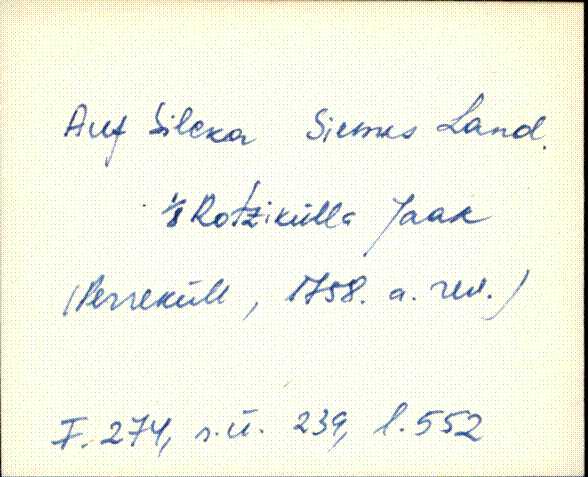 Auf Sileka Siemas Land.
1/8 Rotzikülla Jaak
(Perreküll, 1758. a. rev.)
F. 274, s.ü. 239, l. 552